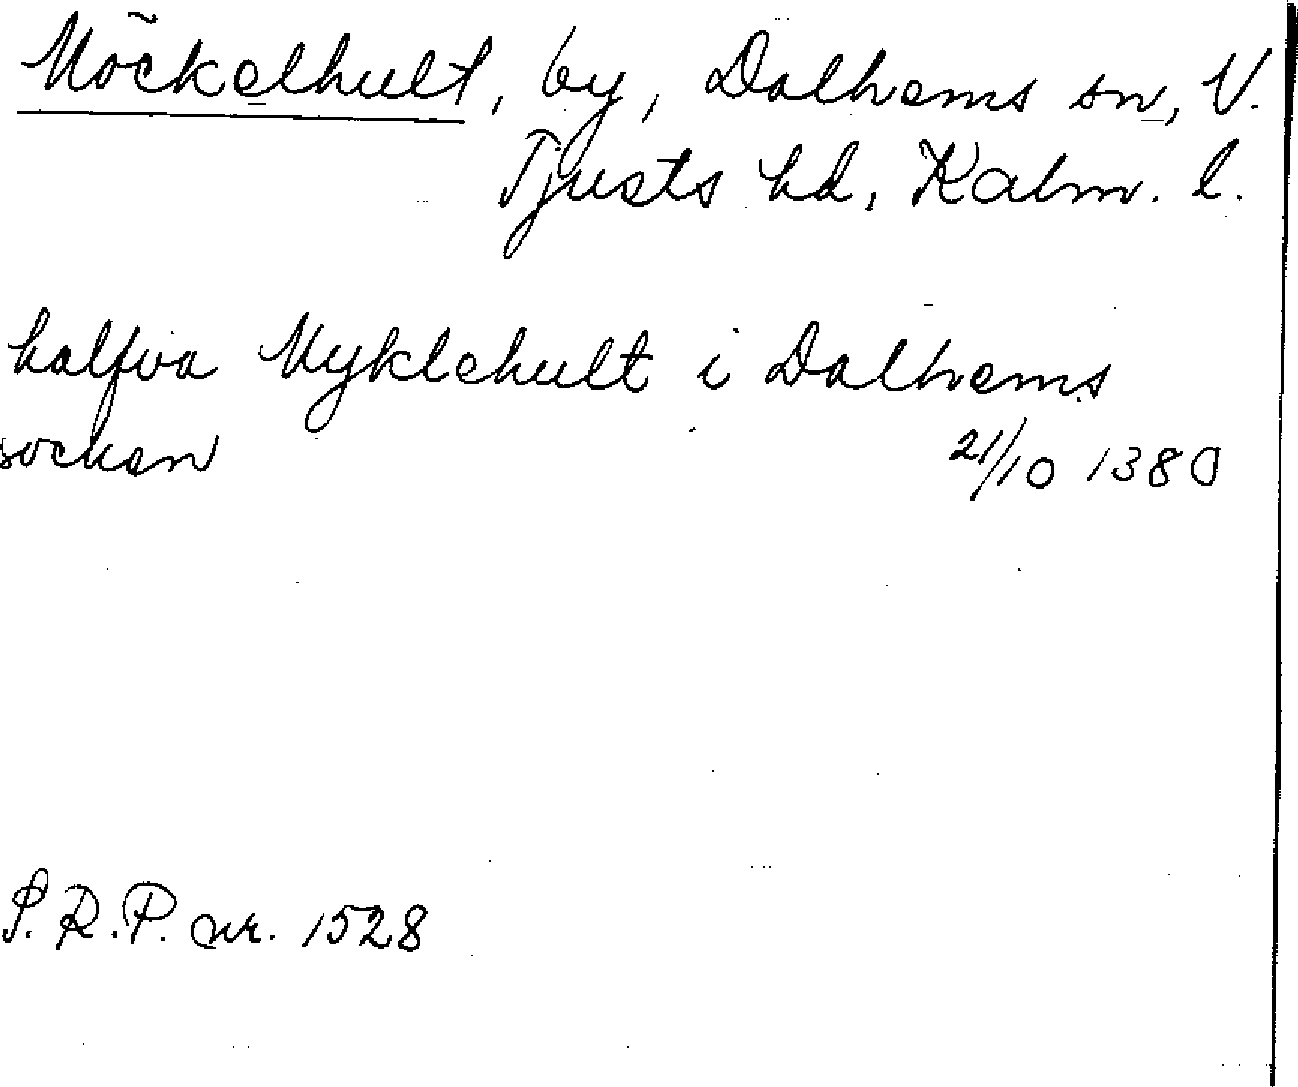 Möckelhult, by, Dalhems sn, V.
Tjusts hd, Kalm. l.
halfva Myklehult i Dalhems
sockan 21/10 1380
S.R.P. nr. 1528